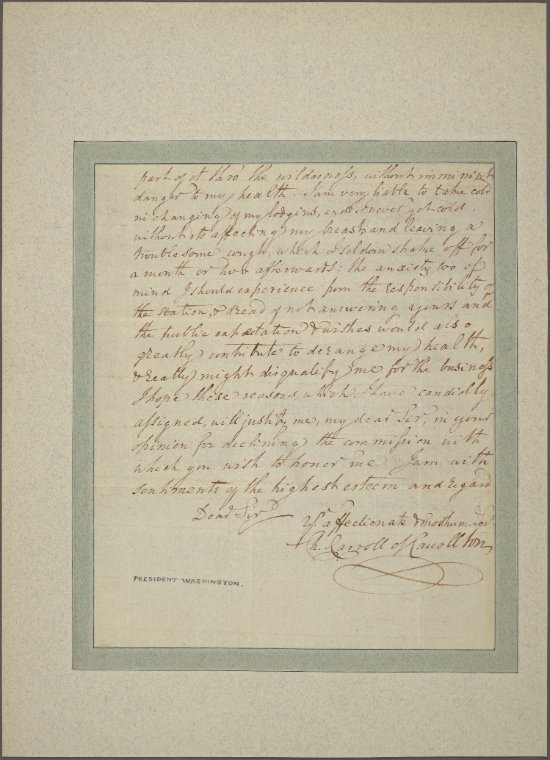 part of it thro' the wilderness, without imminent
danger to my health. I am very liable to take cold
in changing of my lodgins, and never get cold
without its affecting my breast and leaving a
troublesome cough, which I seldom shake off for
a month or two afterwards: the anxiety too of
mind I should experience from the responsibility of
the station, & dread of not answering yours and
the public expectation & wishes would also
greatly contribute to derange my health,
& really might disqualify me for the business
I hope these reasons, which I have candidly
assigned, will justify me, my dear Sir, in your
opinion for declining the commission with
which you wish to honor me. I am with
sentiments of the highest esteem and regard
Dear Sir
Yr. affectionate & most hum. Ser
Ch. Carroll of Carrollton
PRESIDENT WASHINGTON.